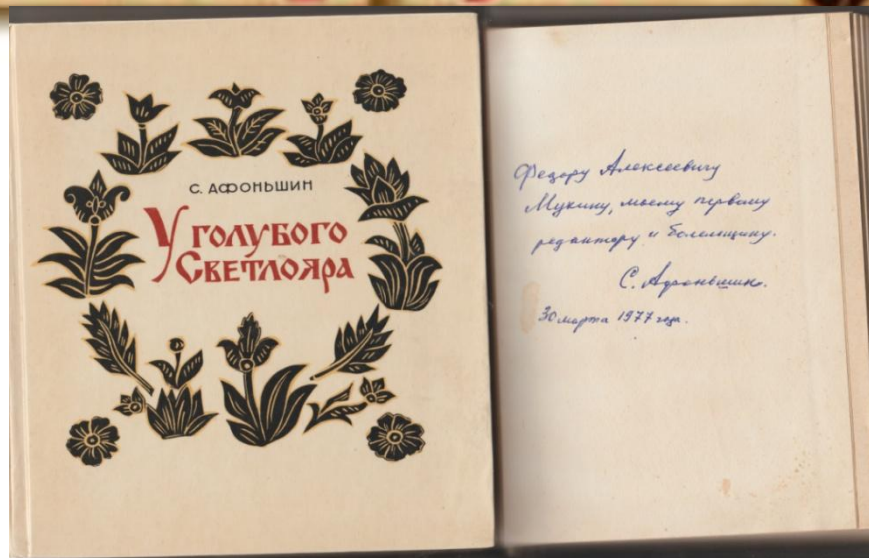 С. АФОНЬШИН
У ГОЛУБОГО
СВЕТЛОЯРА
Федору Алексеевичу
Мукину, моему первому
редактору и болельщику.
С. Афоньшин.
30 марта 1977 года.